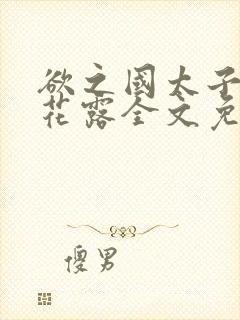 欲之國太子
花露全文免
傻男